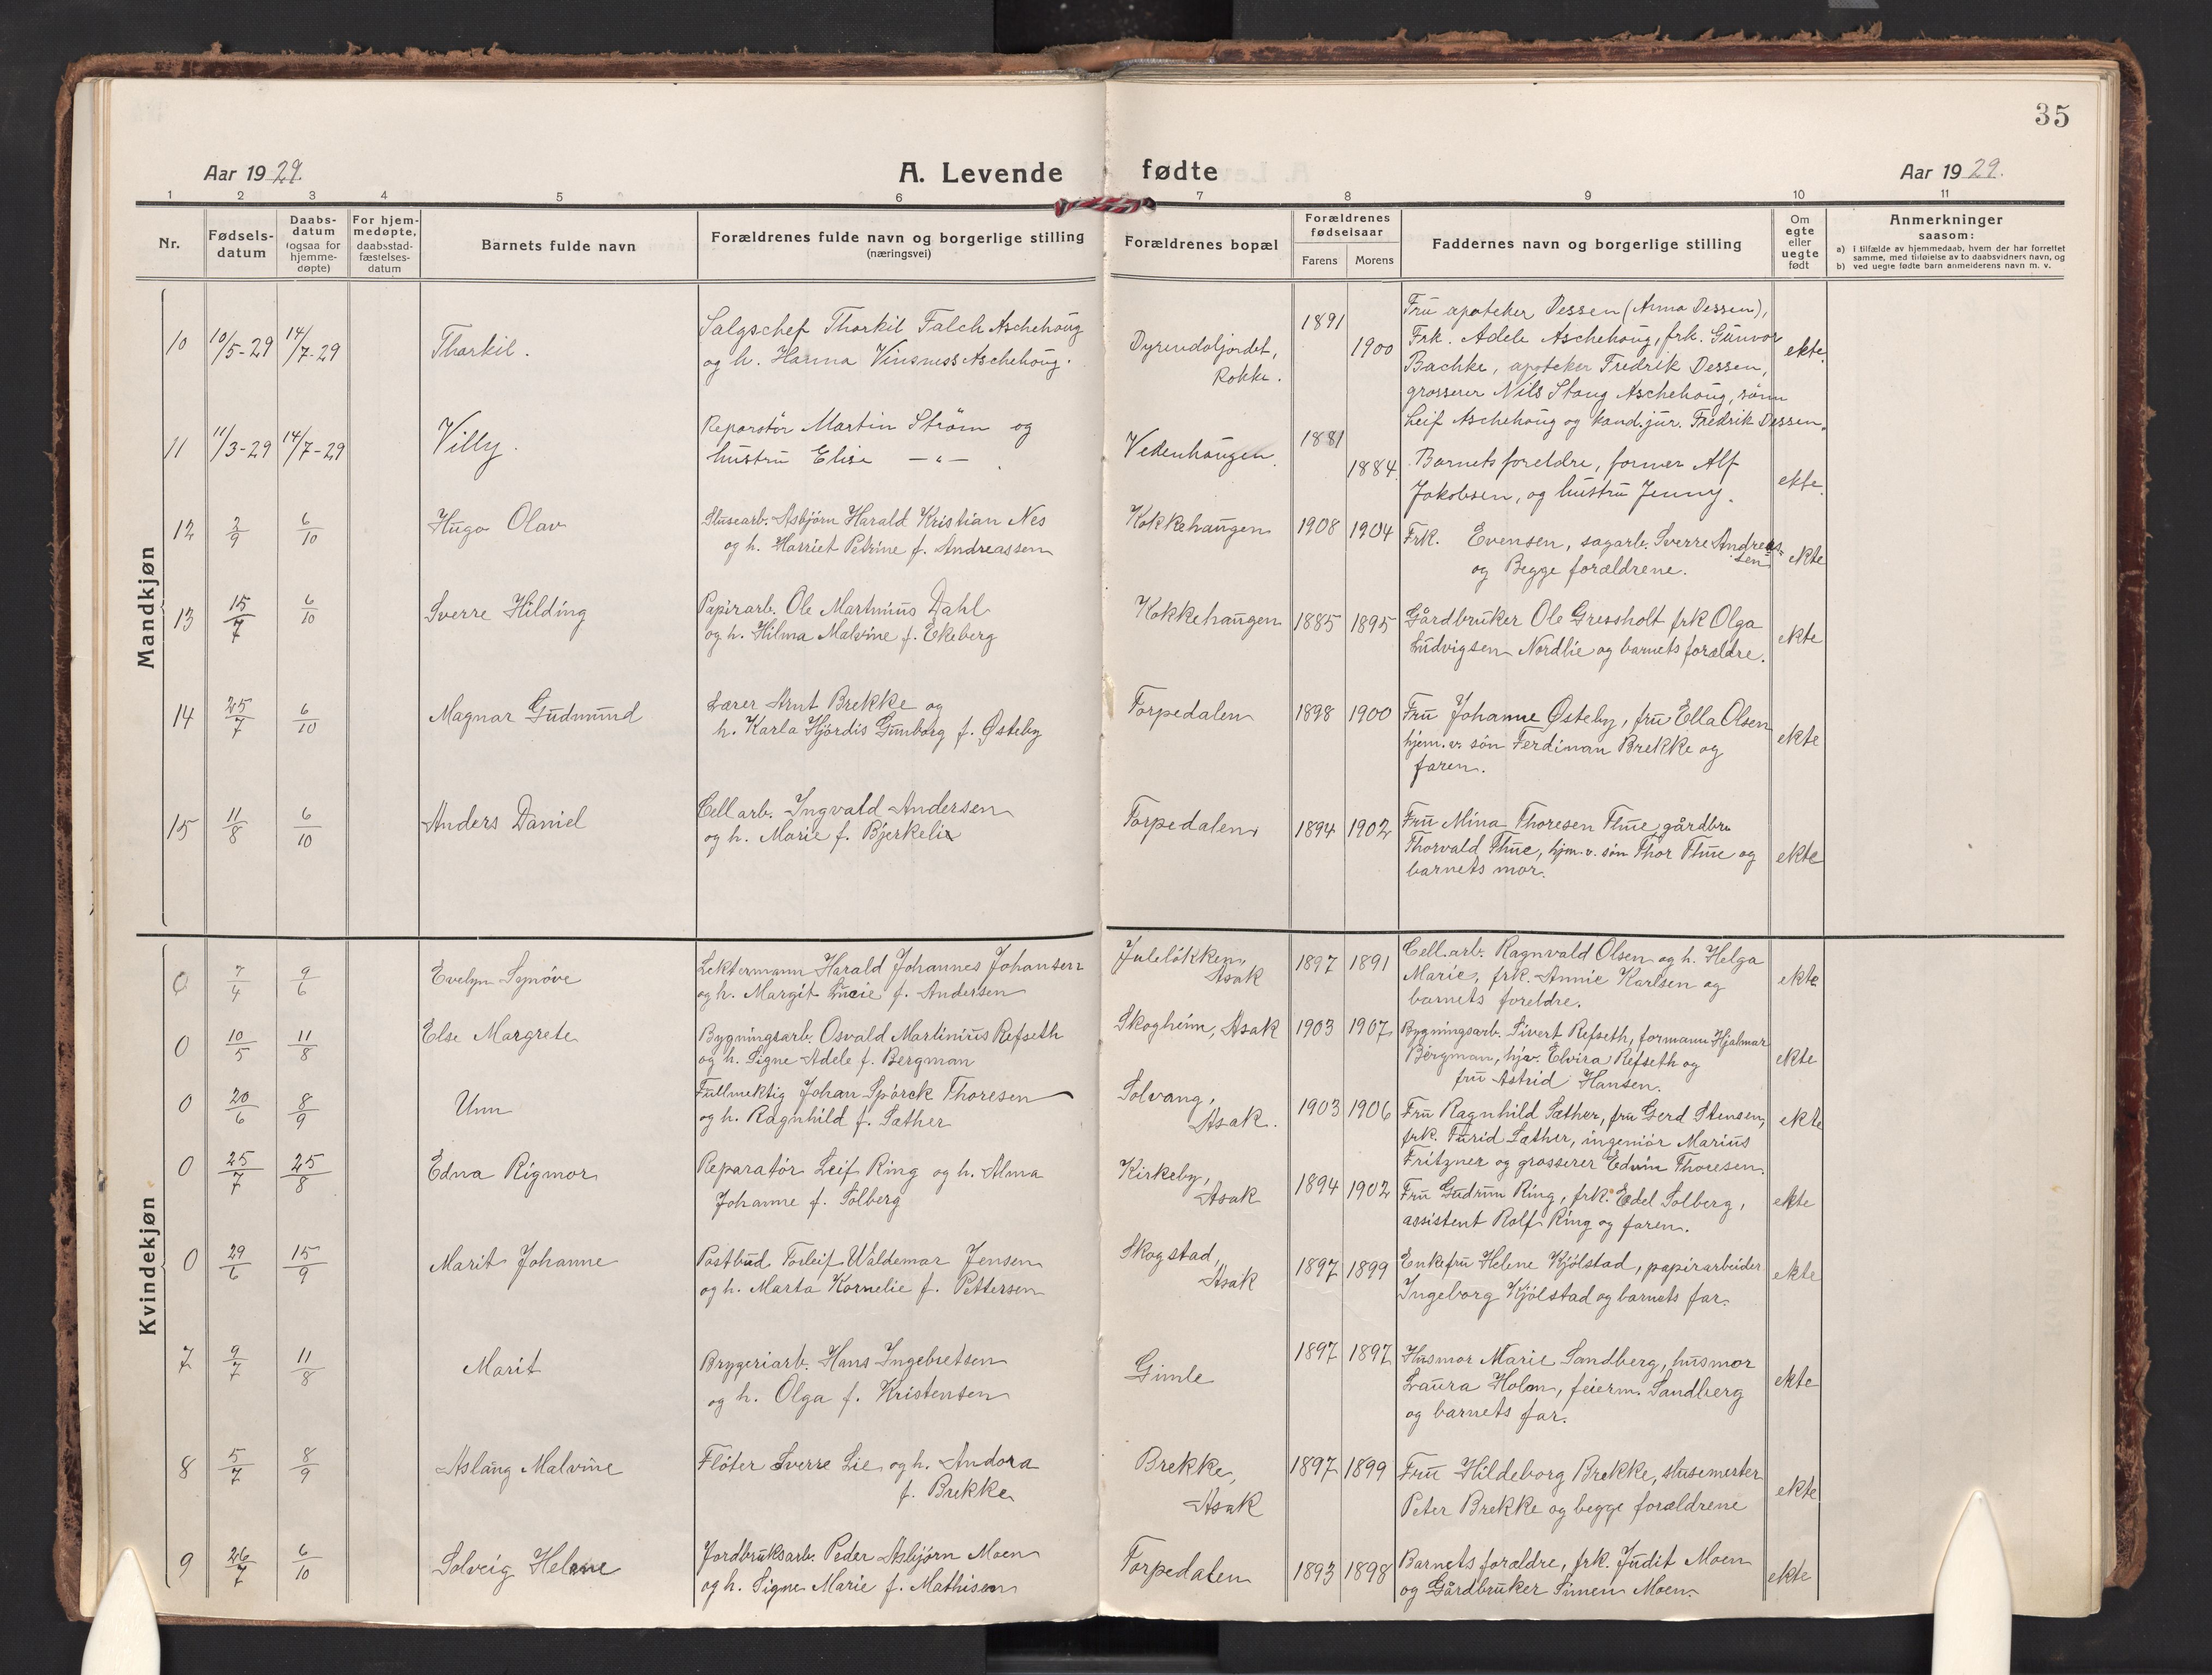 35
Aar 1929.
A. Levende fødte
Aar 1929.
1 2 3 4 5 6 7 8 9 10 11
Nr.
Fødsels-
datum
Daabs-
datum
(ogsaa for
hjemme-
døpte)
For hjem-
medøpte,
daabsstad-
fæstelses-
datum
Barnets fulde navn
Forældrenes fulde navn og borgerlige stilling
(næringsvei)
Forældrenes bopæl
Forældrenes
fødselsaar
Farens Morens
Faddernes navn og borgerlige stilling
Om
egte
eller
uegte
født
Anmerkninger
saasom:
a) i tilfælde av hjemmedaab, hvem der har forrettet
samme, med tilføielse av to daabsvidners navn, og
b) ved uegte fødte barn anmelderens navn m. v.
Mandkjøn
10 10/5-29 14/7-29 Thorkil.
Salgschef Thorkil Falch Aschehoug
og h. Hanna Vinsness Aschehoug.
Rokke.
1891 1900
Fru apoteker Dessen (Anna Dessen),
Frk. Adele Aschehoug, frk. Gunvor
Bachke, apoteker Fredrik Dessen,
grosserer Nils Stang Aschehoug, sønn
Leif Aschehoug og kand.jur. Fredrik Dessen.
ekte.
11 11/3-29 14/7-29 Villy.
Reparatør Martin Strøm og
hustru Elise —"— .
Vedenhaugen.
1881 1884
Barnets foreldre, former Alf
Jakobsen, og hustru Jenny.
ekte.
12 2/9 6/10 Hugo Olav
Slusearb. Asbjørn Harald Kristian Nes
og h. Harriet Petrine f. Andreassen
Kokkehaugen 1908 1904
Frk. Evensen, sagarb. Sverre Andreas-
sen
og Begge forældrene.
ekte
13 15/7 6/10 Sverre Hilding
Papirarb. Ole Martinius Dahl
og h. Hilma Malvine f. Ekeberg
Kokkehaugen 1885 1895
Gårdbruker Ole Gressholt frk Olga
Ludvigsen Nordlie og barnets forældre.
ekte
14 25/7 6/10 Magnar Gudmund
Lærer Arnt Brekke og
h. Karla Hjördis Gunborg f. Østeby
Torpedalen 1898 1900
Fru Johanne Østeby, fru Ella Olsen
hjem.v. sön Ferdinan Brekke og
faren.
ekte
15 11/8 6/10 Anders Daniel
Cell arb. Ingvald Andersen
og h. Marie f. Bjerkelie
Torpedalen 1894 1902
Fru Mina Thoresen Thue gårdbru
Thorvald Thue, hjm.v. sön Thor Thue og
barnets mor.
ekte
Kvindekjøn
0 7/4 9/6 Evelyn Synöve
Lektermann Harald Johannes Johansen
og h. Margit Lucie f. Andersen
Julelökken,
Asak
1897 1891
Cell.arb. Ragnvald Olsen og h. Helga
Marie, frk. Annie Karlsen og
barnets foreldre.
ekte
0 10/5 11/8 Else Margrete
Bygningsarb. Osvald Martinius Refseth
og h. Signe Adele f. Bergman
Skogheim, Asak 1903 1907
Bygningsarb. Sivert Refseth, formann Hjalmar
Bergman, hjv. Elvira Refseth og
fru Astrid Hansen.
ekte
0 20/6 8/9 Unn
Fullmektig Johan Spörck Thoresen
og h. Ragnhild f. Sæther
Solvang,
Asak.
1903 1906
Fru Ragnhild Sæther, fru Gerd Stensen,
frk. Turid Sæther, ingeniör Marius
Fritzner og grosserer Edvin Thoresen.
ekte
0 25/7 25/8 Edna Rigmor
Reparatör Leif Ring og h. Alma
Johanne f. Solberg
Kirkeby,
Asak
1894 1902
Fru Gudrun Ring, frk. Edel Solberg,
assistent Rolf Ring og faren.
ekte
0 29/6 15/9 Marit Johanne
Postbud Torleif Waldemar Jensen
og h. Marta Kornelie f. Pettersen
Skogstad,
Asak
1897 1899
Enkefru Helene Kjölstad, papirarbeider
Ingeborg Kjölstad og barnets far.
ekte
7 9/7 11/8 Marit
Bryggeriarb. Hans Ingebretsen
og h. Olga f. Kristensen
Gimle
1897 1897
Husmor Marie Sandberg, husmor
Laura Holm, feierm. Sandberg
og barnets far.
ekte
8 5/7 8/9 Aslaug Malvine
Flöter Sverre Lie og h. Andora
f. Brekke
Brekke,
Asak
1897 1899
Fru Hildeborg Brekke, slusemester
Peter Brekke og begge forældrene
ekte
9 26/7 6/10 Solveig Helene
Jordbruksarb. Peder Asbjørn Moen
og h. Signe Marie f. Mathisen
Torpedalen 1893 1898
Barnets forældre, frk. Judit Moen
og Gårdbruker Simen Moen.
ekte